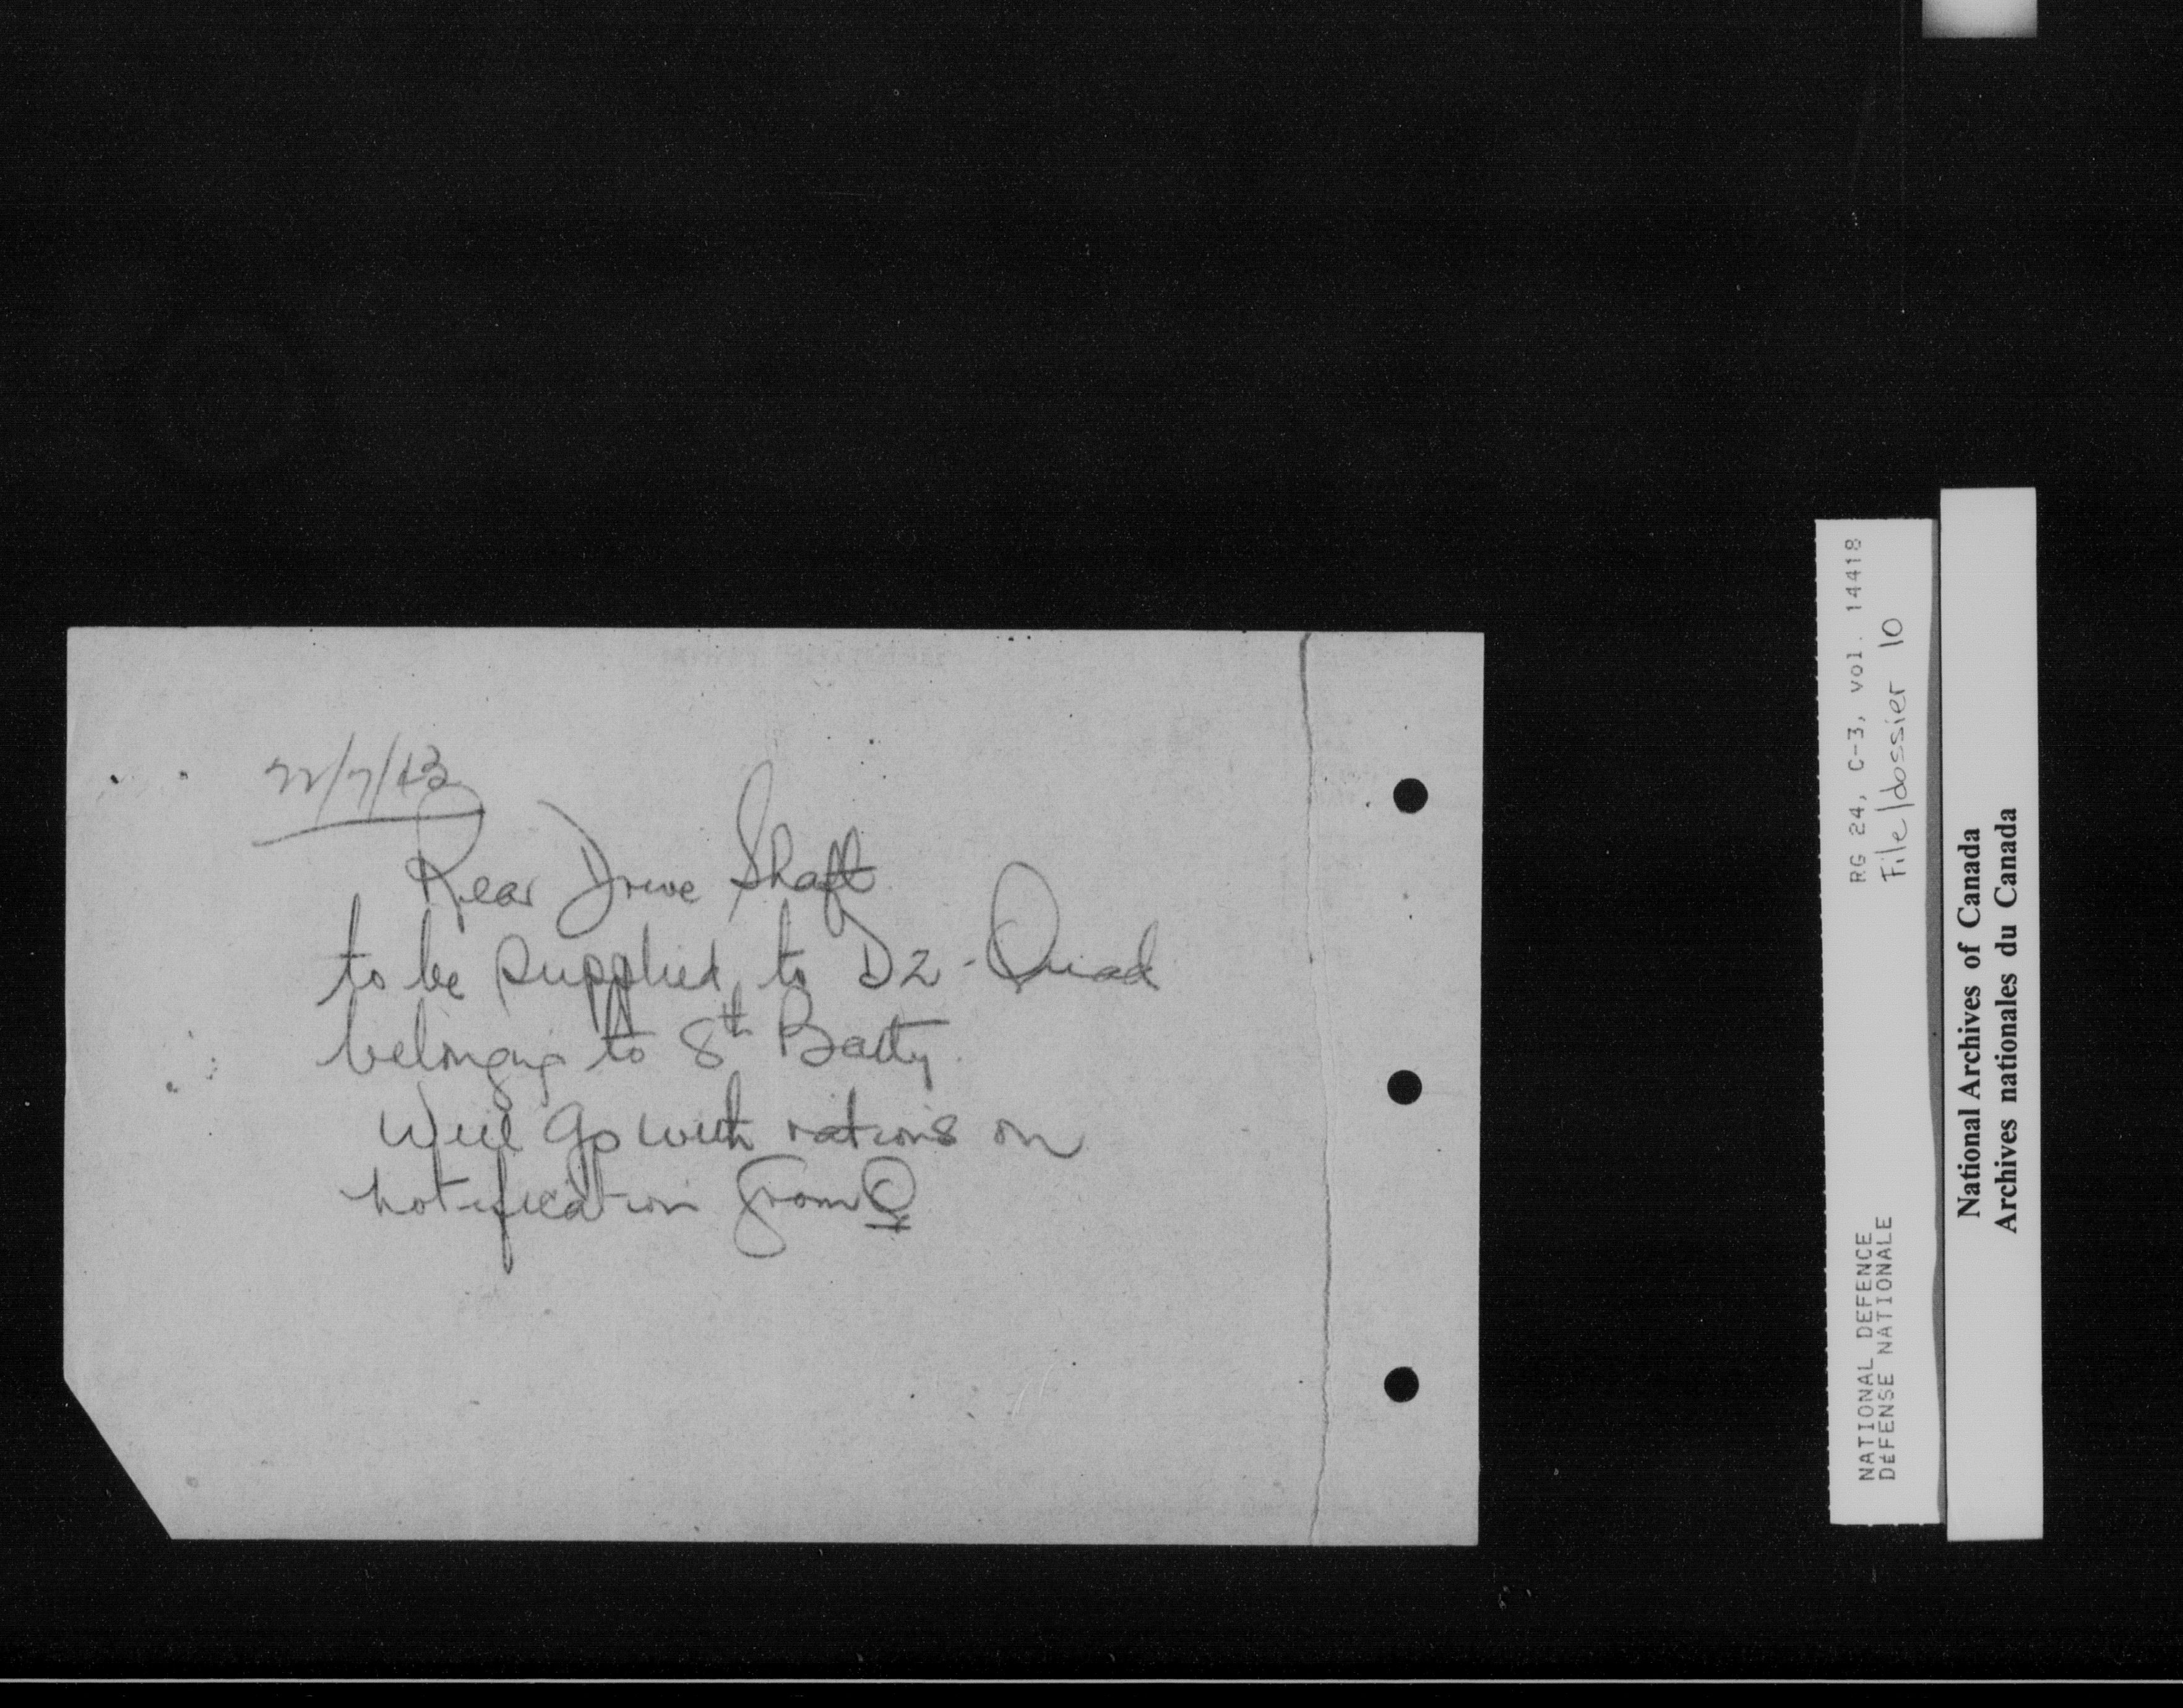 22/7/43
Rear Drive Shaft
to be supplied to D2 - Quad
belonging to 8th Batty.
Will go with rations on
notification from Q
RG 24, C-3, vol. 14418
File/dossier 10
NATIONAL DEFENCE
DÉFENSE NATIONALE
National Archives of Canada
Archives nationales du Canada